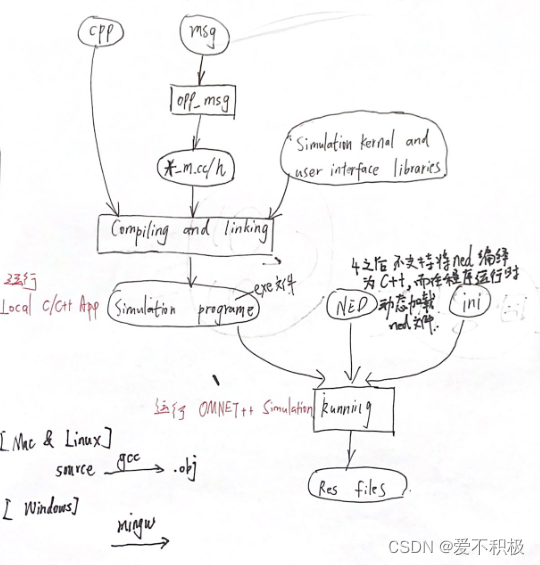 cpp
msg
opp_msg
*_m.cc/h
Simulation kernal and
user interface libraries
Compiling and linking
运行
Local C/C++ App
Simulation programe
exe文件
4之后不支持将ned编译
为C++,而在程序运行时
动态加载
ned文件.
NED
ini
运行 OMNET++ Simulation
Running
Res files
[Mac & Linux]
source gcc .obj
[Windows]
mingw
CSDN @爱不积极